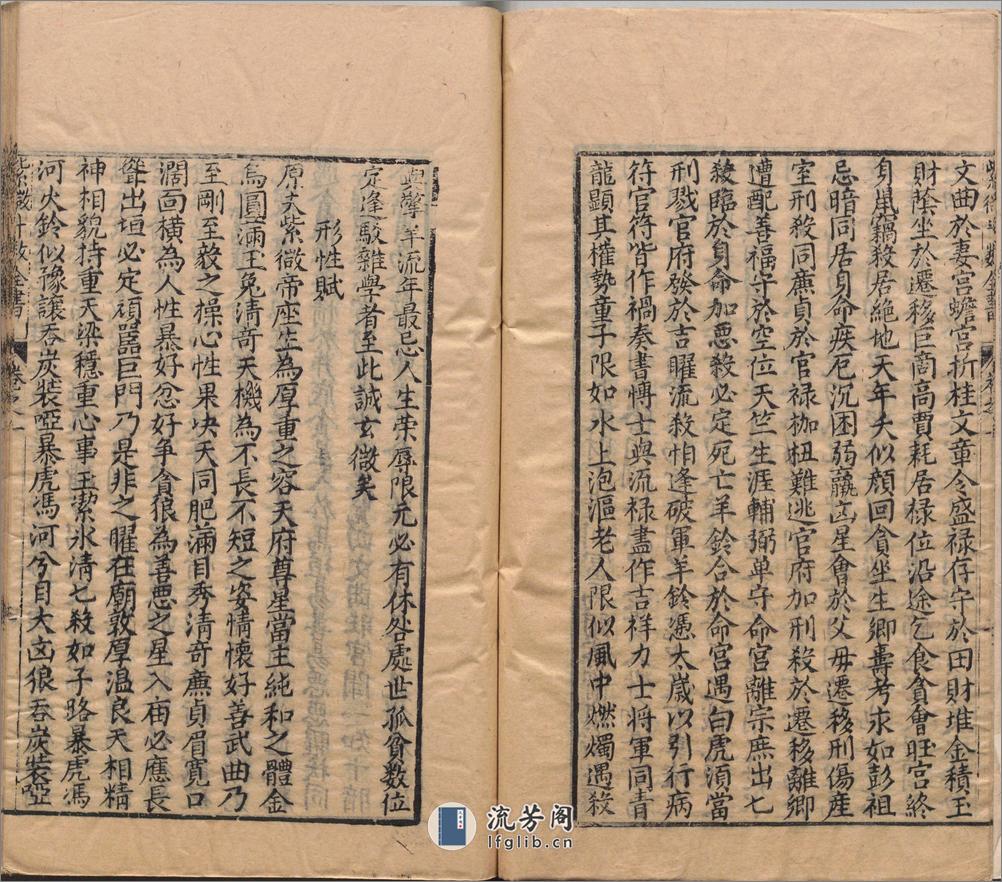 文曲於妻宮蟾宮折桂文章令盛禄存守於田財堆金積玉
財蔭坐於遷移巨商高賈耗居禄位沿途乞食貪會旺宮終
身鼠竊殺居絕地天年夭似顏回貪坐生鄉壽考永如彭祖
忌暗同居身命疾厄沉困弱羸凶星會於父母遷移刑傷産
室刑殺同廉貞於官禄枷杻難逃官府加刑殺於遷移離鄉
遭配善福守於空位天竺生涯輔弼单守命宮離宗庶出七
殺臨於身命加惡殺必定死亡羊鈴合於命宮遇白虎須當
刑戮官府發於吉曜流殺怕逢破軍羊鈴憑太歲以引行病
符官符皆作禍奏書博士與流禄盡作吉祥力士将軍同青
龍顯其權勢童子限如水上泡漚老人限似風中燃燭遇殺
與擎羊流年最忌人生荣辱限元必有休咎處世孤貧數位
定逢駁雜學者至此誠玄微矣
形性賦
原夫紫微帝座生為厚重之容天府尊星當主純和之體金
烏圓滿玉兔清奇天機為不長不短之姿情懷好善武曲乃
至剛至毅之操心性果决天同肥滿目秀清奇廉貞眉寬口
濶面横為人性暴好忿好爭貪狼為善惡之星入庙必應長
聳出垣必定頑嚚巨門乃是非之曜在廟敦厚温良天相精
神相貌持重天梁穩重心事玉潔氷清七殺如子路暴虎馮
河火鈴似豫讓吞炭裝啞暴虎馮河兮目大凶狼吞炭裝啞
紫微斗數全書
流芳阁
lfglib.cn